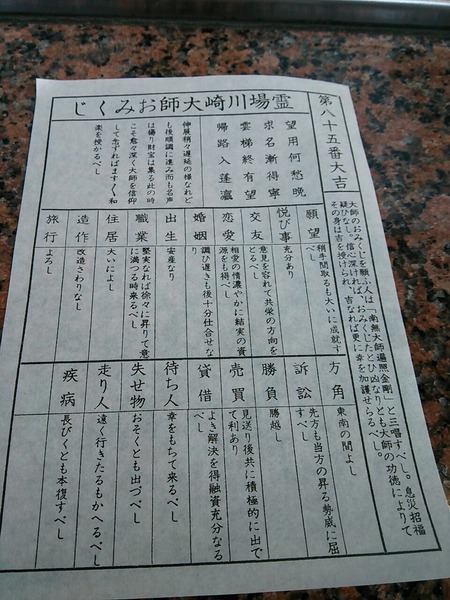 霊場川崎大師おみくじ
第八十五番大吉
大師のおみくじを願ふ人は「南無大師遍照金剛」と三唱すべし。息災招福
疑ひなし。信心深ければ、おみくじたとひ凶なりとも大師の功徳によりて
その身は吉を授けられ、吉なれば更に幸を加護せらるべし。
望用何愁晩
求名漸得寧
雲梯終有望
帰路入蓬瀛
伸展稍々遅延の様なれど
も後順調に進み而も名声
は揚り財宝は集る此の時
こそ愈々深く大師を信仰
して志すればます〱和
楽を授かるべし
願望 稍手間取るも大いに成就すべし
悦び事 充分あり
交友 意見を容れて共栄の方向をとるべし
恋愛 相愛の情濃やかに結実の資源をも得べし
婚姻 調ひ遅きも後十分仕合せなり
出生 安産なり
職業 堅実なれば徐々に昇りて意に満つる時来るべし
住居 大いによし
造作 改造さわりなし
旅行 よろし
方角 東南の間よし
訴訟 先方も当方の昇る勢威に屈すべし
勝負 勝越し
売買 見送り後共に積極的に出でて利あり
貸借 よき解決を得融資充分なるべし
待ち人 幸をもちて来るべし
失せ物 おそくとも出づべし
走り人 遠く行きたるもかへるべし
疾病 長びくとも本復すべし